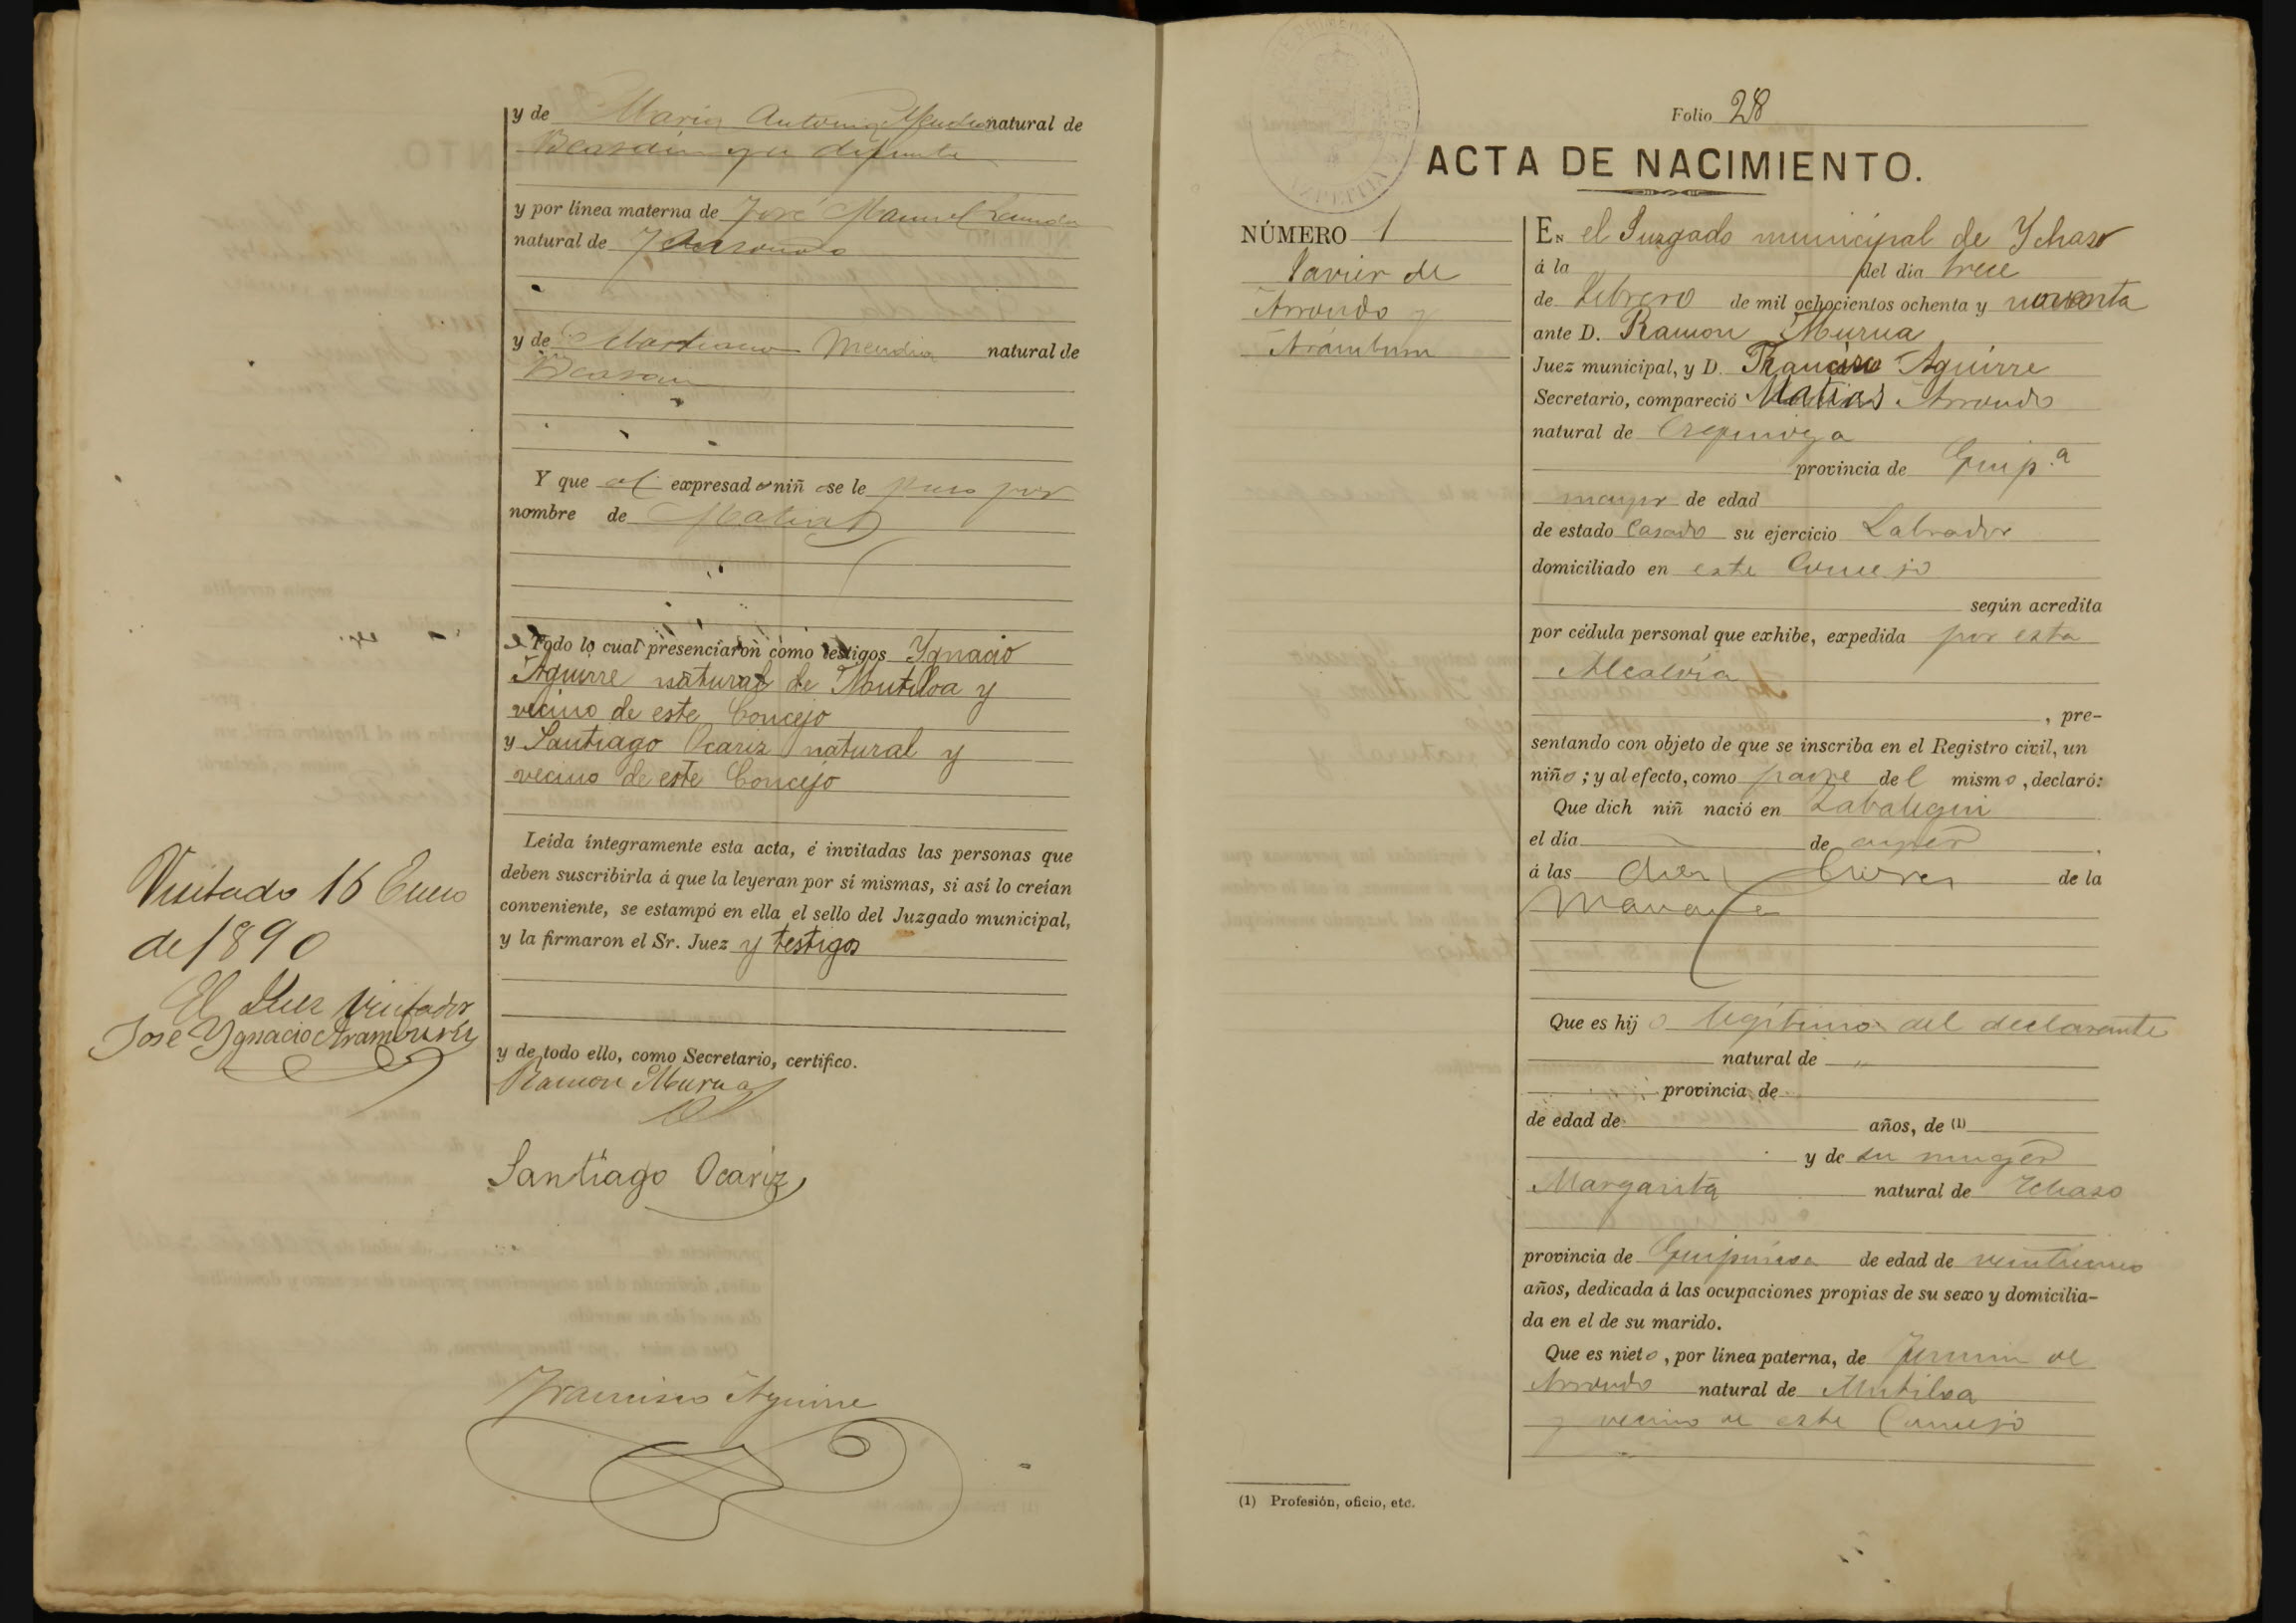 y de Maria Antonia Mendia natural de
Beasain ya difunta
y por línea materna de José Manuel
natural de
y de Martina Mendia natural de
Beasain
Y que al expresado niño se le puso por
nombre de Matias
Todo lo cual presenciaron como testigos Ygnacio
Aguirre natural de Mutiloa y
vecino de este Concejo
y Santiago Ocariz natural y
vecino de este Concejo
Leída íntegramente esta acta, é invitadas las personas que
deben suscribirla á que la leyeran por sí mismas, si así lo creían
conveniente, se estampó en ella el sello del Juzgado municipal,
y la firmaron el Sr. Juez y testigos
y de todo ello, como Secretario, certifico.
Ramon Murua
Santiago Ocariz
Francisco Aguirre
Visitado 16 Enero
de 1890
El Juez Visitador
Jose Ygnacio Aramburu
Folio 28
ACTA DE NACIMIENTO.
NÚMERO 1
Javier de
Arrondo y
Aramburu
EN el Juzgado municipal de Ychaso
á la del dia trece
de Febrero de mil ochocientos ochenta y noventa
ante D. Ramon Murua
Juez municipal, y D. Francisco Aguirre
Secretario, compareció Matias Arrondo
natural de
provincia de Guip.a
mayor de edad
de estado Casado su ejercicio Labrador
domiciliado en este Concejo
según acredita
por cédula personal que exhibe, expedida por esta
Alcaldía
, pre-
sentando con objeto de que se inscriba en el Registro civil, un
niño; y al efecto, como padre del mismo, declaró:
Que dich niñ nació en
el día de ayer
á las diez de la
Mañana
Que es hijo legitimo del declarante
natural de
provincia de
de edad de años, de (1)
y de su muger
Margarita natural de Ichaso
provincia de Guipúzcoa de edad de
años, dedicada á las ocupaciones propias de su sexo y domicilia-
da en el de su marido.
Que es nieto, por línea paterna, de Fermin de
Arrondo natural de Mutiloa
y vecino de este Concejo
(1) Profesión, oficio, etc.